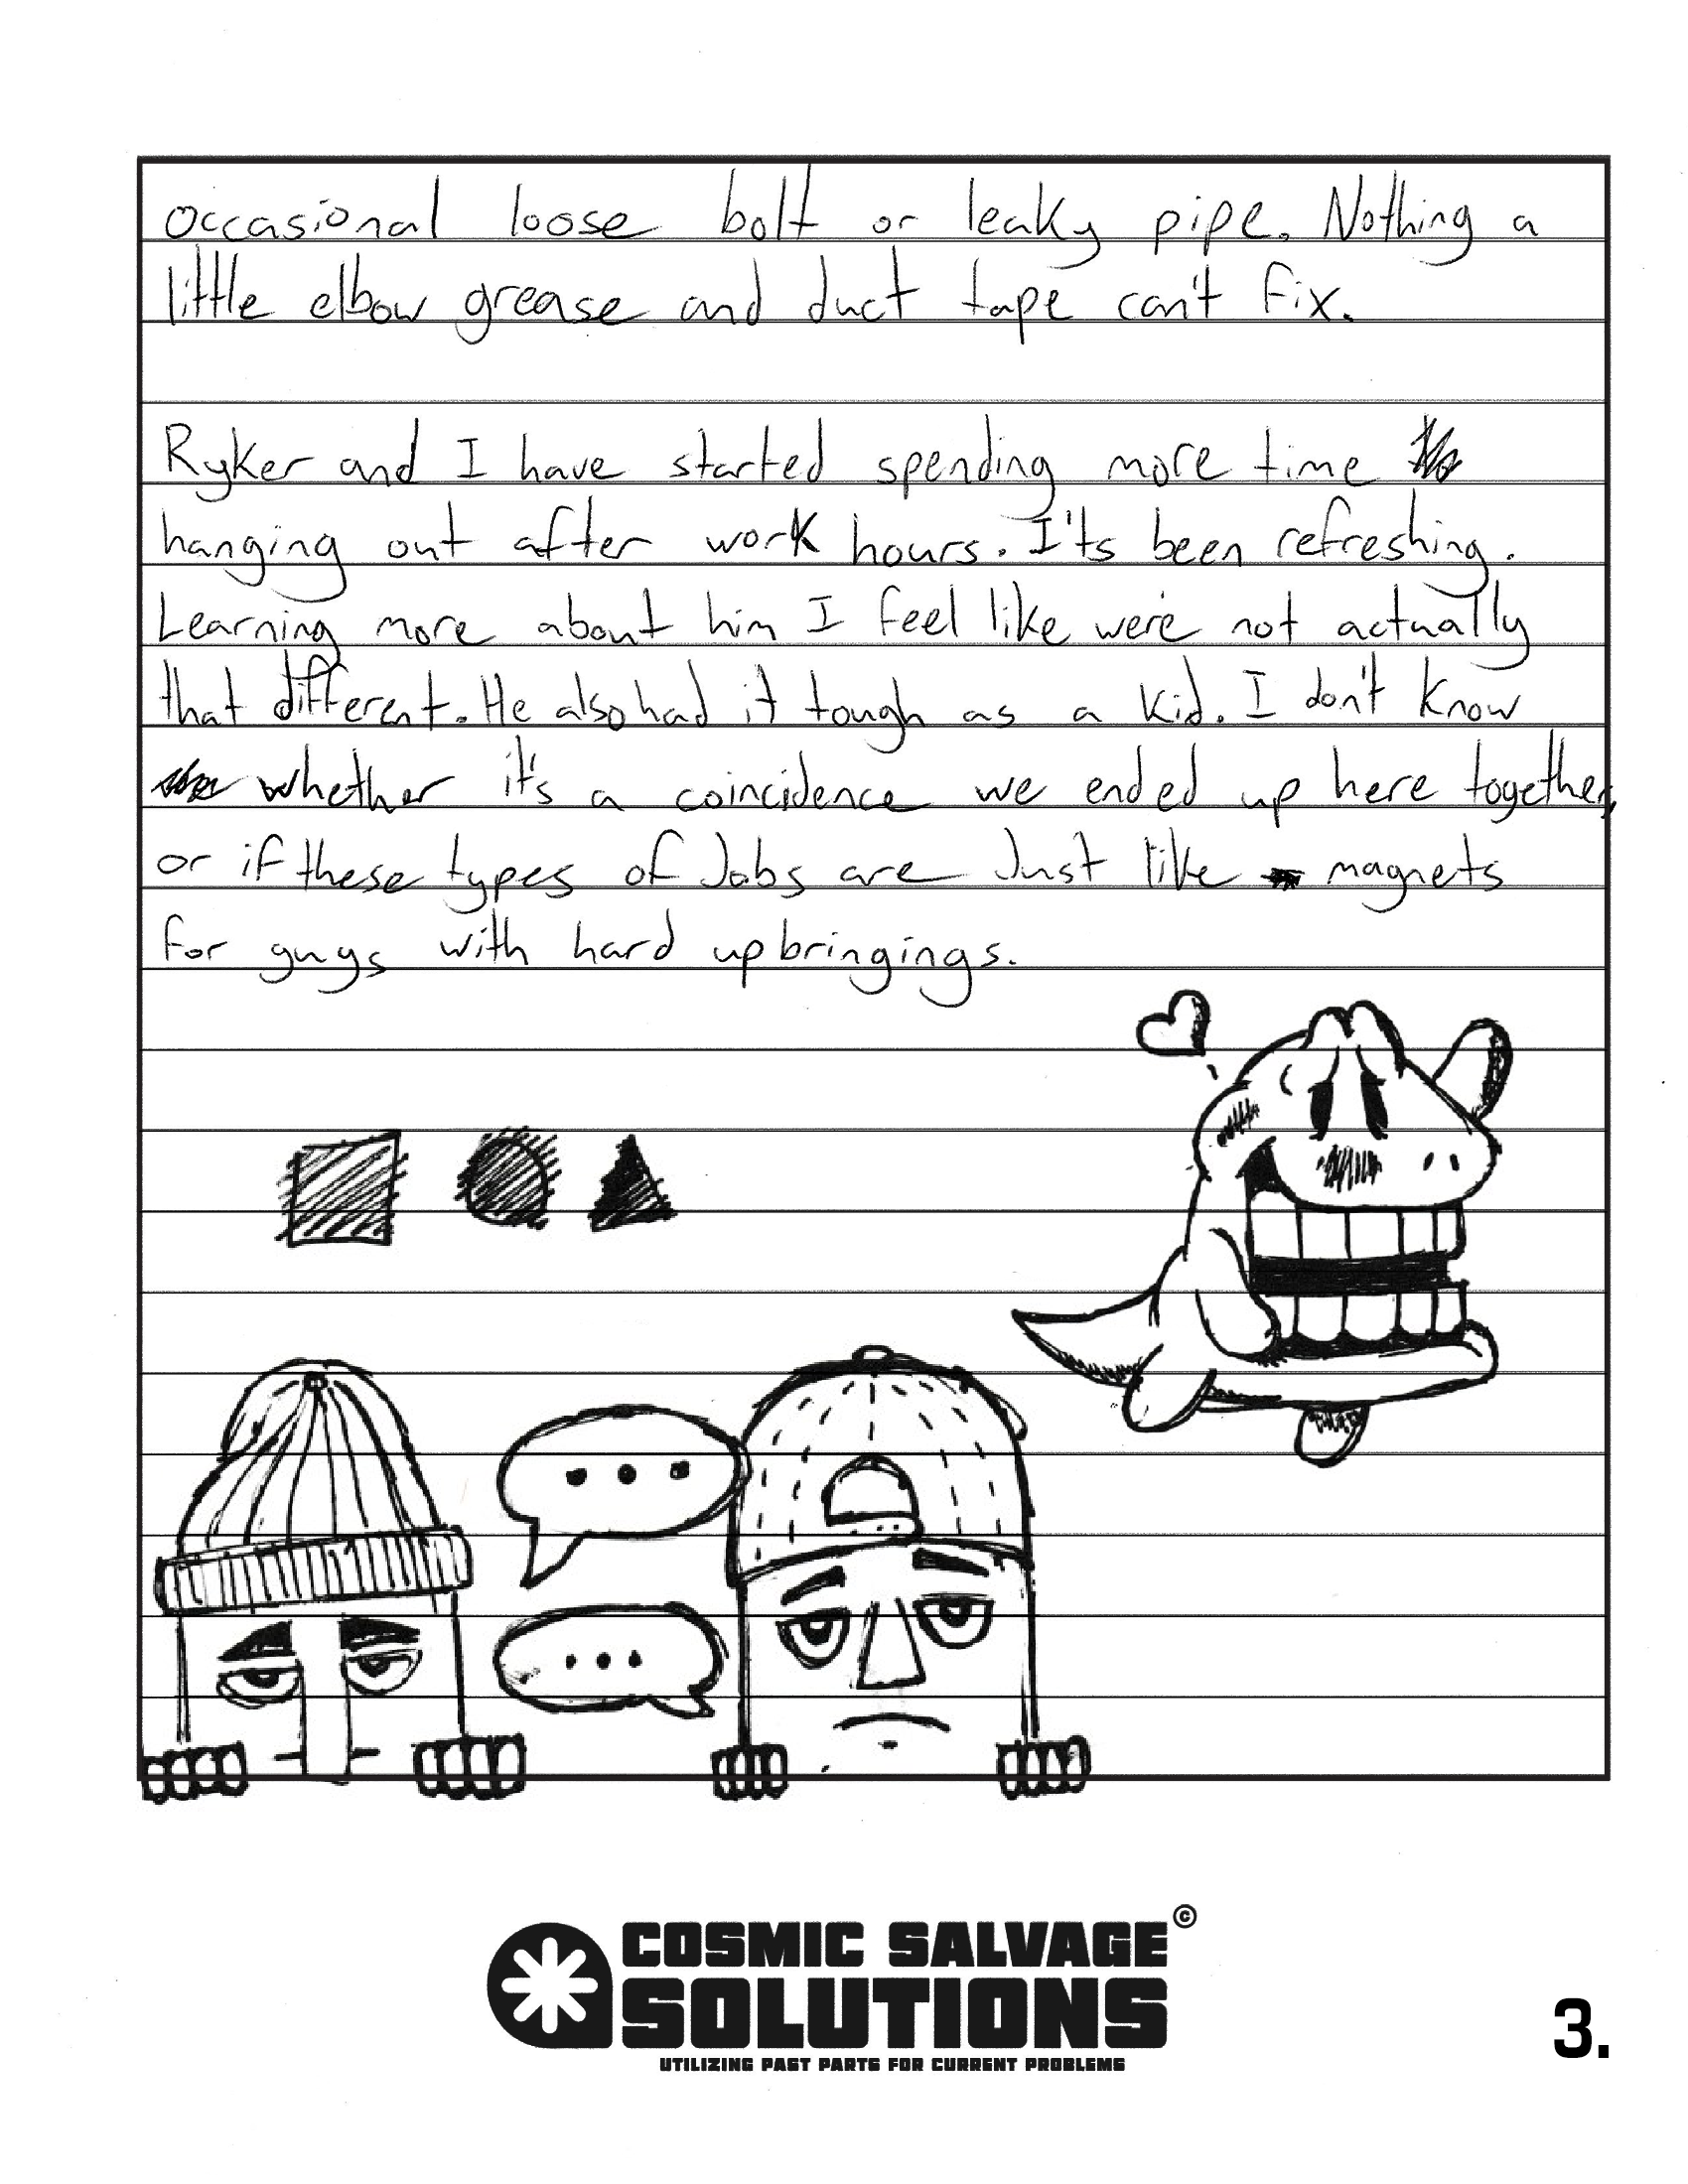 occasional loose bolt or leaky pipe. Nothing a
little elbow grease and duct tape can't fix.
Ryker and I have started spending more time
hanging out after work hours. I'ts been refreshing.
Learning more about him I feel like we're not actually
that different. He also had it tough as a kid. I don't know
whether it's a coincidence we ended up here together,
or if these types of Jobs are Just like magnets
for guys with hard upbringings.
...
...
COSMIC SALVAGE ©
SOLUTIONS
UTILIZING PAST PARTS FOR CURRENT PROBLEMS
3.